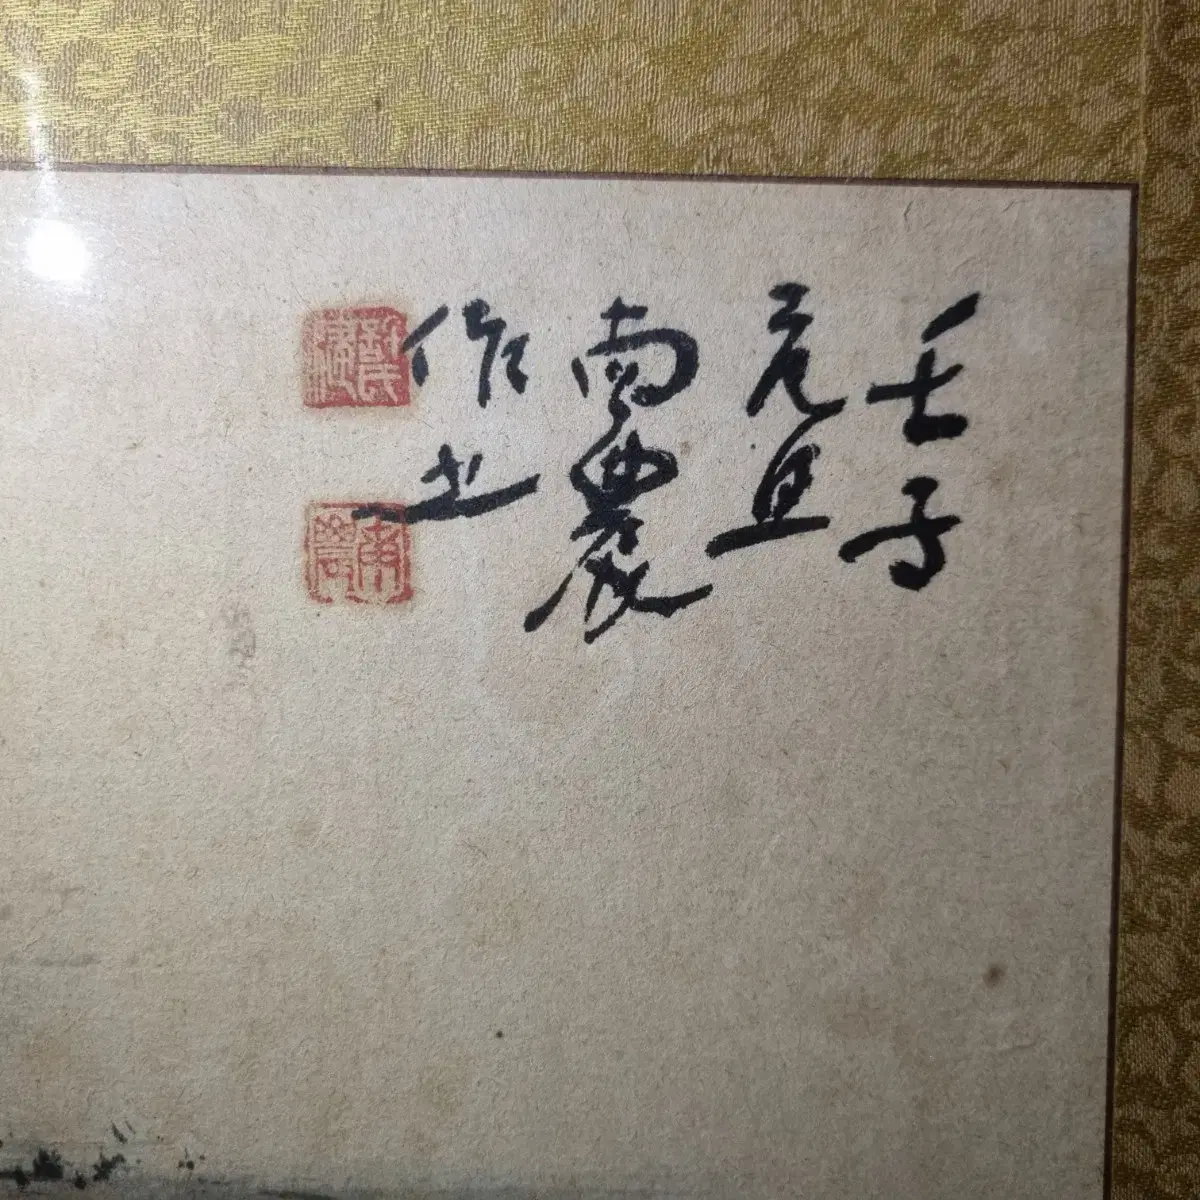 壬子
元旦
南農
作之
南農